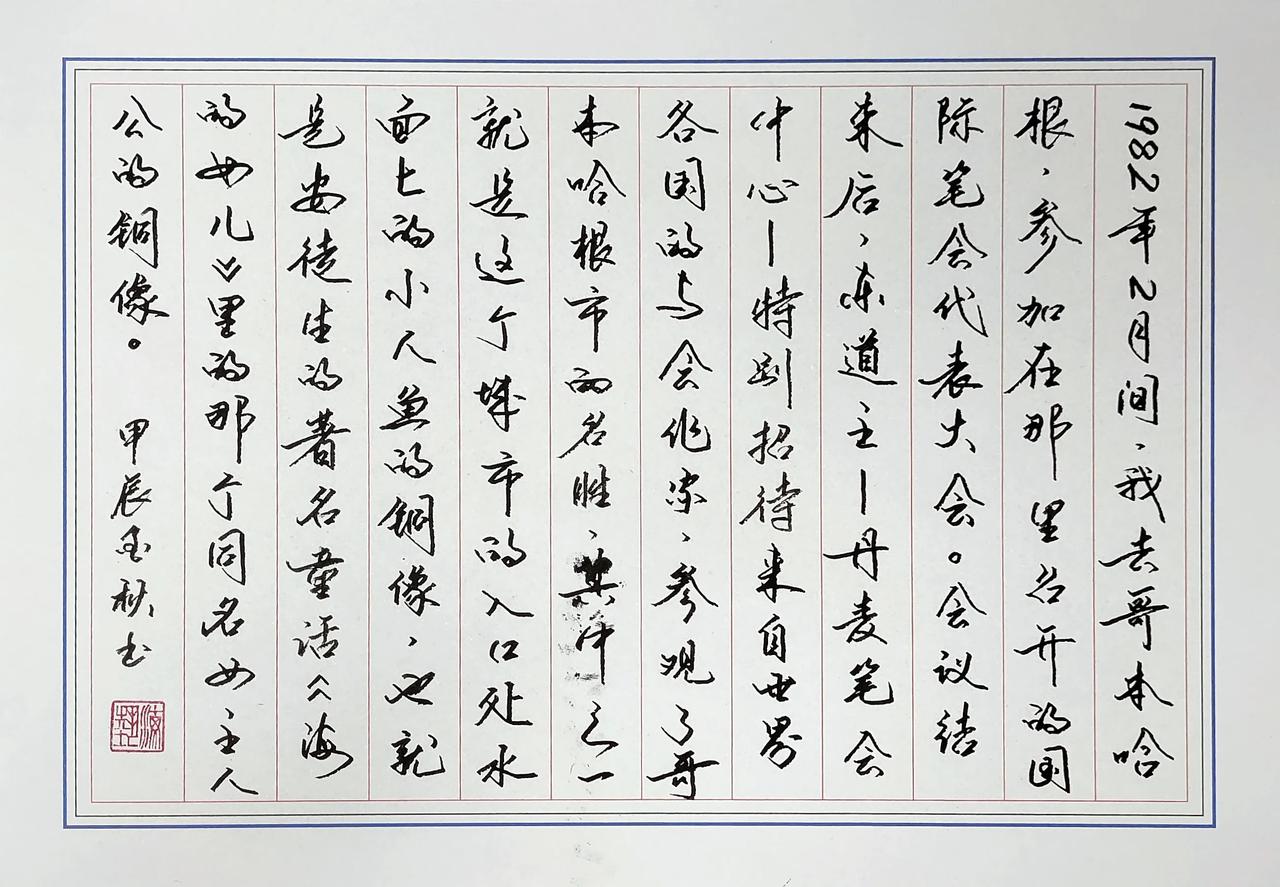 1982年2月间、我去哥本哈
根、参加在那里召开的国
际笔会代表大会。会议结
束后、东道主—丹麦笔会
中心—特别招待来自世界
各国的与会作家、参观了哥
本哈根市的名胜、其中之一
就是这个城市的入口处水
面上的小人鱼的铜像、也就
是安徒生的著名童话《海
的女儿》里的那个同名女主人
公的铜像。 甲辰金秋书